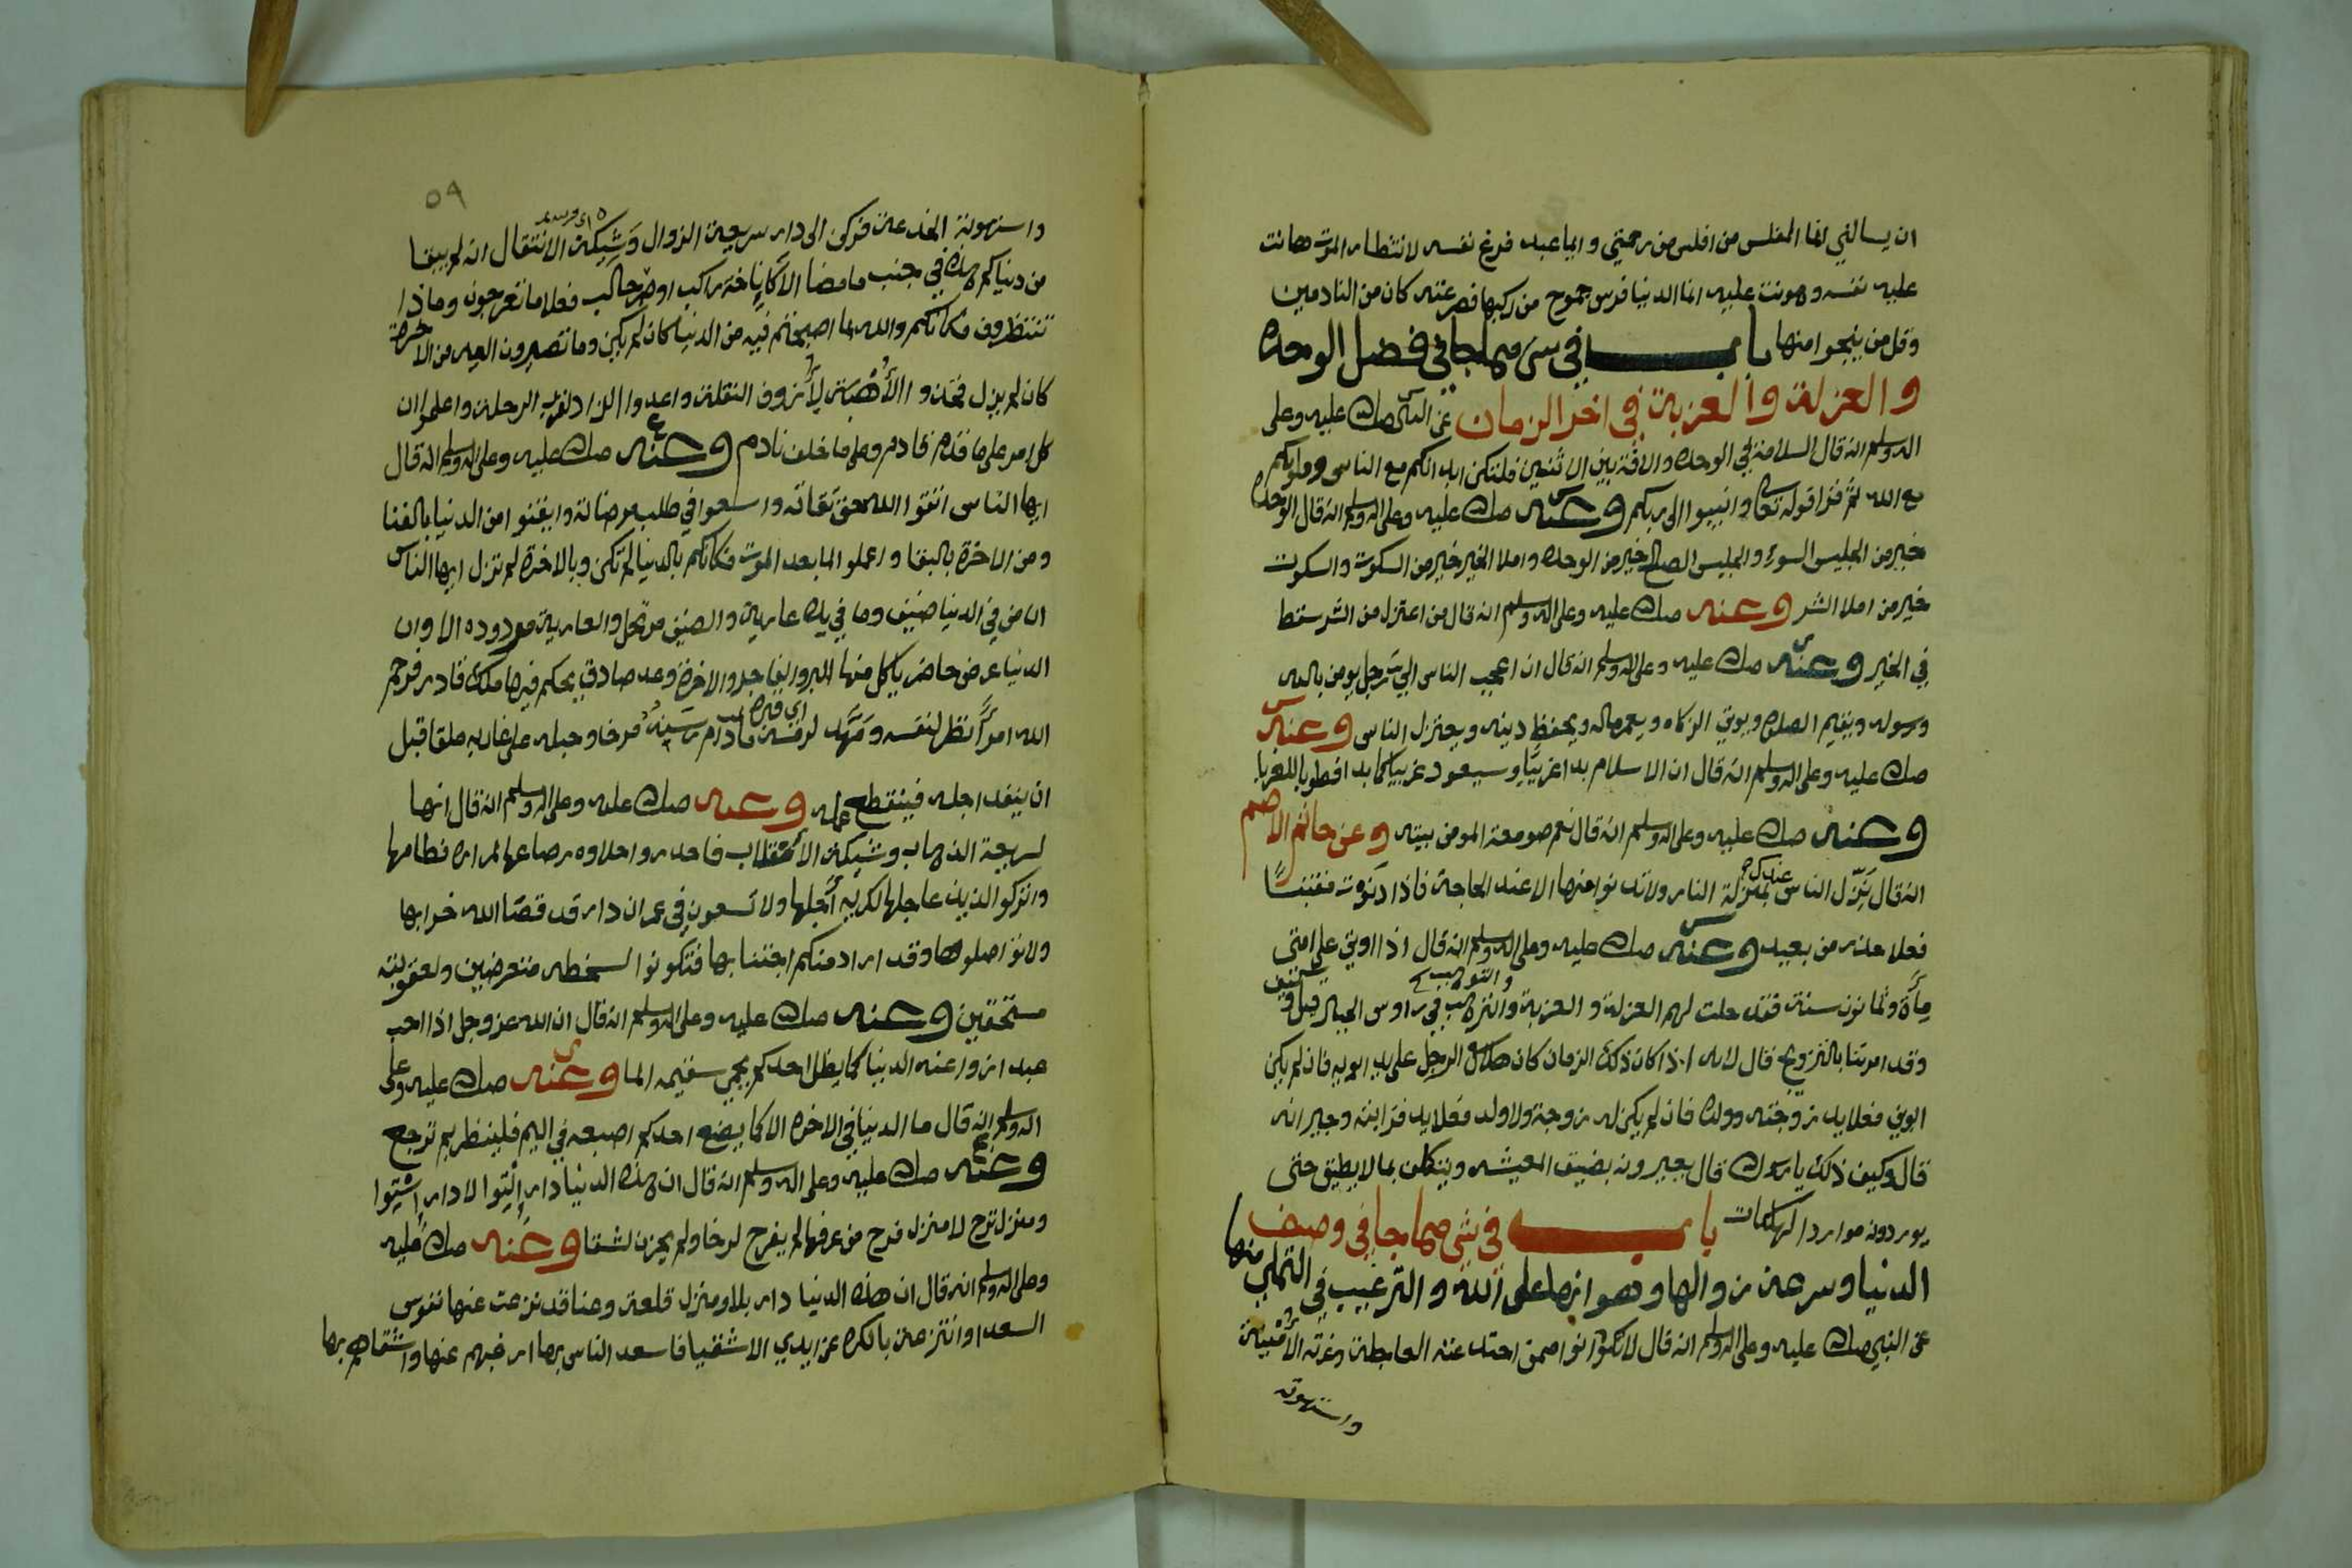 ان يسالني لقا المفلس من افلس من رحمتي وايما عبد فرغ نفسه لانتظار الموت هانت
عليه نفسه وهونت عليه انما الدنيا فرس جموح من ركبها فصرعته كان من النادمين
وقل من ينجوا منها باب في شي مما جا في فضل الوحده
والعزلة والعزبة في اخر الزمان عن النبي صلى الله عليه وعلى
اله وسلم انه قال السلامة في الوحده والافة بين الاثنين فلتكن ابدانكم مع الناس وقلوبكم
مع الله ثم قرا قوله تعالى وانيبوا الى ربكم وعنه صلى الله عليه وعلى اله وسلم انه قال الوحدة
خير من الجليس السوء والجليس الصالح خير من الوحده واملا الخير خير من السكوت والسكوت
خير من املا الشر وعنه صلى الله عليه وعلى اله وسلم انه قال من اعتزل من الشر سقط
في الخير وعنه صلى الله عليه وعلى اله وسلم انه قال ان اعجب الناس الي رجل يومن بالله
ورسوله ويقيم الصلاة ويوتي الزكاه ويعمر ماله ويحفظ دينه ويعتزل الناس وعنه
صلى الله عليه وعلى اله وسلم انه قال ان الاسلام بدا غريبا وسيعود غريبا كما بدا فطوبا للغربا
وعنه صلى الله عليه وعلى اله وسلم انه قال نعم صومعة المومن بيته وعن حاتم الاصم
انه قال نزل الناس عندك بمنزلة النار ولا تدنوا منها الا عند الحاجة فاذا دنوت فقتبسا
فعلا حذر من بعيد وعنه صلى الله عليه وعلى اله وسلم انه قال اذا اوتي على امتي
مأة وثمانون سنة فقد حلت لهم العزلة والعزبة والترهب في راوس الجبال قيل وكيف
وقد امرتنا بالتزويج قال لانه اذا كان ذلك الزمان كان هلاك الرجل على يد ابويه فان لم يكن
ابوين فعلا يد زوجته وولده فان لم يكن له زوجة ولا ولد فعلا يد قرابته وجيرانه
قال وكيف ذلك يا رسول الله قال يعيرونه بضيق المعيشه ويتكلف بما لا يطيق حتى
يوردونه موارد الهلكات باب في شي مما جا في وصف
الدنيا وسرعة زوالها وهوانها على الله والترغيب في التخلي منها
عن النبي صلى الله عليه وعلى اله وسلم انه قال لا تكونوا ممن اختدعته العاجلة وغرته الامنية
واستهوته
٥٩
واستهوته الخدعة فركن الى دار سريعة الزوال وشيكة الانتقال انه لم يبقا
من دنياكم هذه في جنب ما مضا الا كاناخة راكب او صر حالب فعلا ما تعرجون وماذا
تنتظرون فكانكم والله بما اصبحتم فيه من الدنيا كان لم يكن وما تصيرون اليه من الاخرة
كان لم يزل فخذوا الأهبة لأزوف النقلة واعدوا الزاد لقرب الرحلة واعلموا ان
كل امر على ما قدم قادم وعلى ما خلف نادم وعنه صلى الله عليه وعلى اله وسلم انه قال
ايها الناس اتقوا الله حق تقاته واسعوا في طلب مرضاته وايقنوا من الدنيا بالفنا
ومن الاخرة بالبقا واعملو لما بعد الموت فكانكم بالدنيا لم تكن وبالاخرة لم تزل ايها الناس
ان من في الدنيا ضيف وما في يده عارية والضيف مرتحل والعارية مردوده الا وان
الدنيا عرض حاضر ياكل منها البر والفاجر والاخرة وعد صادق يحكم فيها ملك قادر فرحم
الله امرأ نظر لنفسه ومهد لرمسه ما دام رسنه مرخا وحبله على غاربه ملقا قبل
ان ينفد اجله فينقطع عمله وعنه صلى الله عليه وعلى اله وسلم انه قال انها
لسريعة الذهاب وشيكة الانقلاب فاحذروا حلاوه رضاعها لمراره فطامها
واتركو لذيذ عاجلها لكريه أجلها ولا تسعون في عمران دار قد قضا الله خرابها
ولا تواصلوها وقد اراد منكم اجتنابها فتكونوا لسخطه متعرضين ولعقوبته
مستحقين وعنه صلى الله عليه وعلى اله وسلم انه قال ان الله عز وجل اذا احب
عبد ازوا عنه الدنيا كما يظل احدكم يحمي سقيمه الما وعنه صلى الله عليه وعلى
اله وسلم انه قال ما الدنيا في الاخره الا كما يضع احدكم اصبعه في اليم فلينظر بم ترجع
وعنه صلى الله عليه وعلى اله وسلم انه قال ان هذه الدنيا دار التوا لا دار استوا
ومنزل ترح لا منزل فرح من عرفها لم يفرح لرخا ولم يحزن لشقا وعنه صلى الله عليه
وعلى اله وسلم انه قال ان هذه الدنيا دار بلا ومنزل قلعة وعنا قد نزعت عنها نفوس
السعدا وانتزعت بالكره عن ايدي الاشقيا فاسعد الناس بها ارغبهم عنها واشقاهم بها